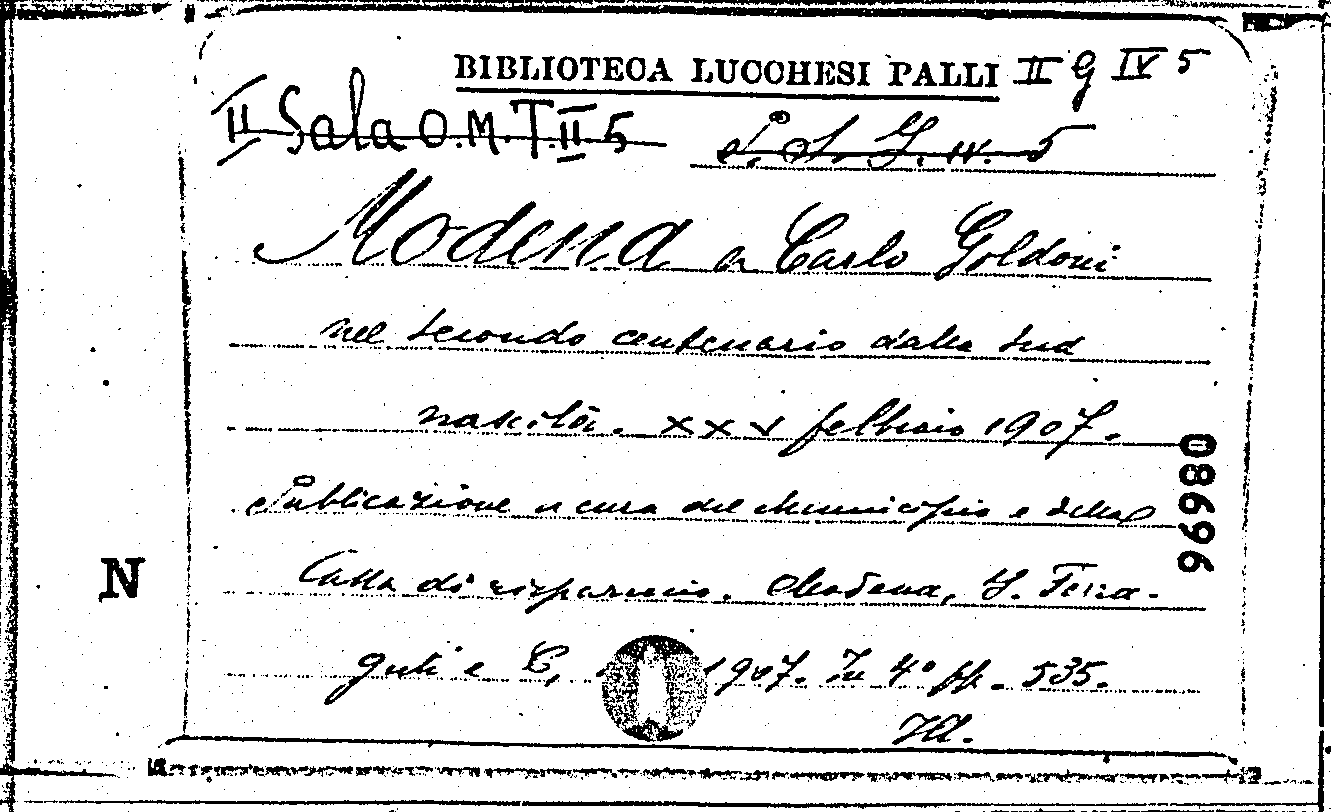 BIBLIOTECA LUCCHESI PALLI II G IV 5
II Sala O.M.T.II 5
Modena a Carlo Goldoni
nel secondo centenario dalla sua
nascita. XXV febbraio 1907.
Pubblicazione a cura del Municipio e della
Cassa di risparmio. Modena, G. Ferra-
guti e C, 1907. In 4° pp. 535.
N
089996